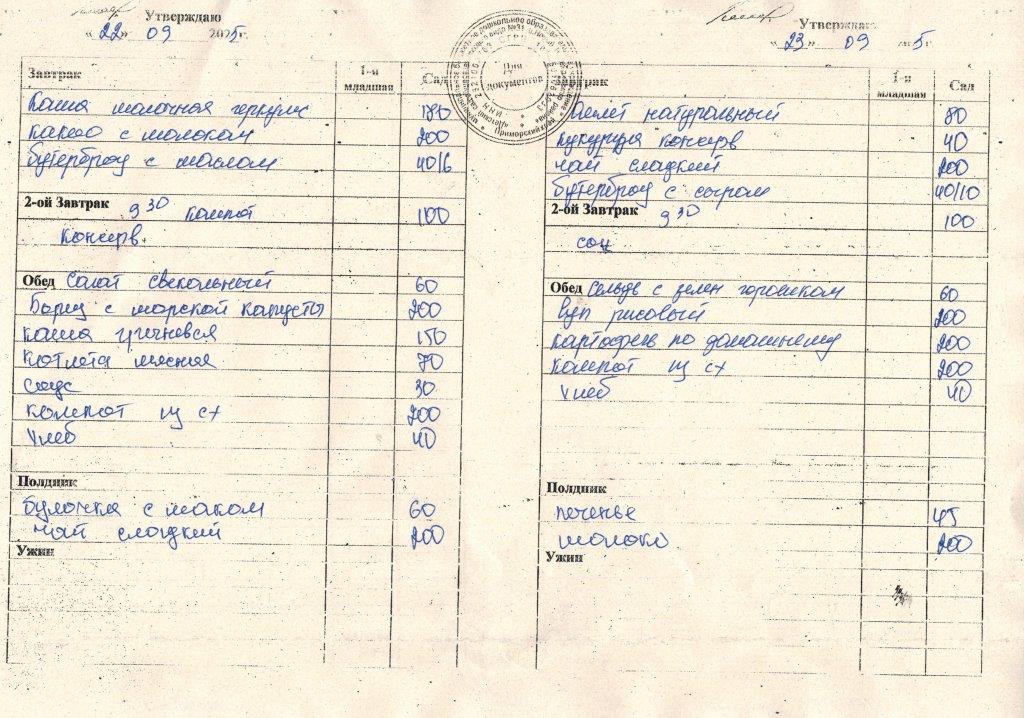 Утверждаю
« 22 » 09 2025г
Завтрак 1-я младшая Сад
Каша молочная геркулес 180
какао с молоком 200
бутерброд с маслом 40/6
2-ой Завтрак 9 30 компот 100
консерв.
Обед Салат свекольный 60
Борщ с морской капусты 200
каша гричневся 150
котлета мясная 70
соус 30
компот из сх 200
хлеб 40
Полдник
булочка с маком 60
чай сладкий 200
Ужин
Утверждаю
« 23 » 09 5г
Завтрак 1-я младшая Сад
Омлет натуральный 80
кукуруза консерв 40
чай сладкий 200
бутерброд с сыром 40/10
2-ой Завтрак 9 30 100
сок
Обед Сельдь с зелен горошком 60
суп рисовый 200
картофель по домашнему 200
компот из сх 200
хлеб 40
Полдник
печенье 45
молоко 200
Ужин
Для документов
Приморский край